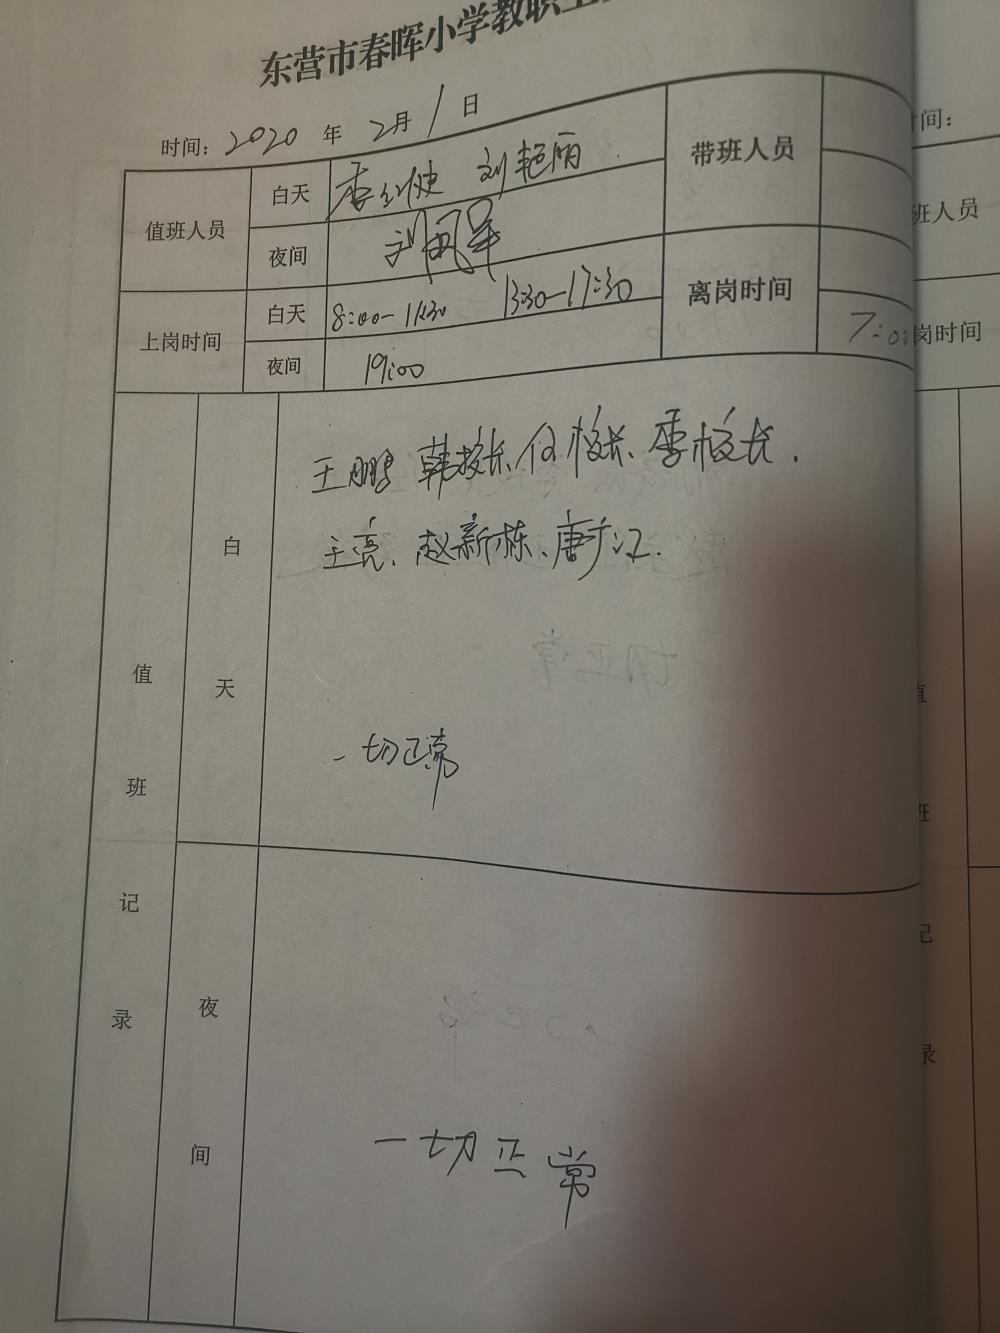 东营市春晖小学教职工
时间：2020 年 2月 1 日
值班人员 白天 刘艳丽 带班人员
夜间 刘凤军
上岗时间 白天 8:00-11:30 13:30-17:30 离岗时间
夜间 19:00 7:00
王鹏 韩校长、任校长、李校长.
王亮、赵新栋、唐广江.
白天
一切正常
值班记录
夜间
一切正常
时间：
班人员
岗时间
值
班
记
录